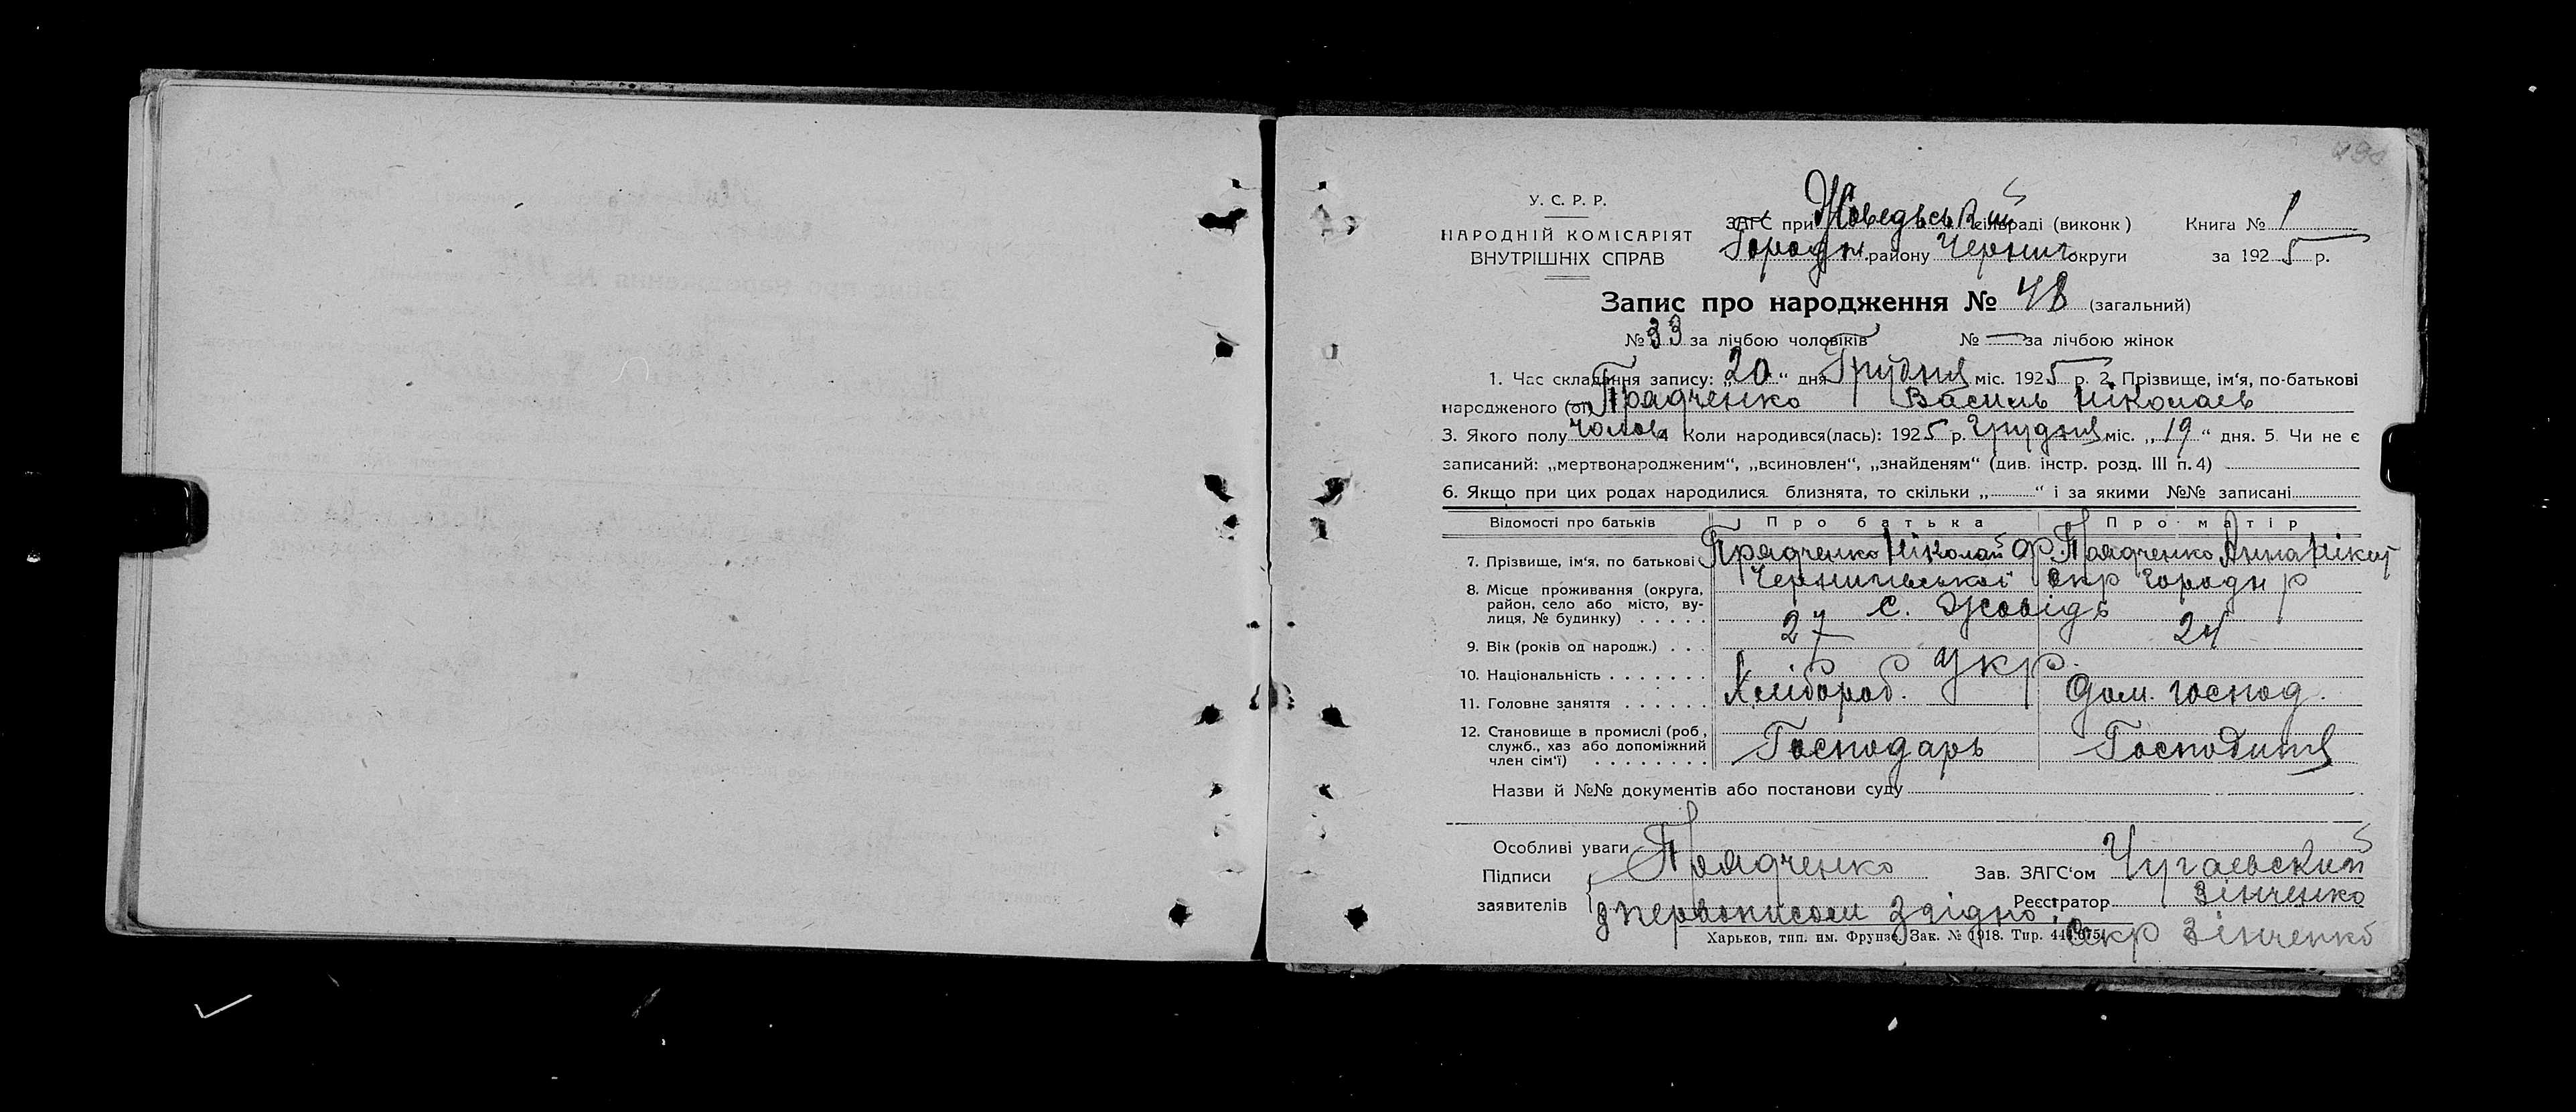 490
У. С. Р. Р.
НАРОДНІЙ КОМІСАРІЯТ
ВНУТРІШНІХ СПРАВ
ЗАГС при Жоведьській сільраді (виконк)
Городн. району Черниг округи
Книга № 1
за 1925 р.
Запис про народження № 48 (загальний)
№ 33 за лічбою чоловіків № — за лічбою жінок
1. Час складання запису: „20“ дня Грудня міс. 1925 р. 2. Прізвище, ім'я, по-батькові
народженого (ої) Прядченко Василь Ніколаев
3. Якого полу чолов. 4 Коли народився(лась): 1925 р. Грудня міс. „19“ дня. 5. Чи не є
записаний: „мертвонародженим“, „всиновлен“, „знайденям“ (див. інстр. розд. III п. 4)
6. Якщо при цих родах народилися близнята, то скільки „ “ і за якими №№ записані
Відомості про батьків Про батька Про матір
7. Прізвище, ім'я, по батькові Прядченко Ніколай Ф. Прядченко Анна Нікит
8. Місце проживання (округа, район, село або місто, вулиця, № будинку) Чернигівської окр Городн р
с. Жовідь
9. Вік (років од народж.) 27 24
10. Національність Укр.
11. Головне заняття Хлібороб. Дом. господ.
12. Становище в промислі (роб., служб., хаз або допоміжний член сім'ї) Господарь Господиня
Назви й №№ документів або постанови суду
Особливі уваги
Підписи заявителів Прядченко
Зав. ЗАГС'ом Чугаевский
Реєстратор Зінченко
З первописом згідно: Секр Зінченко
Харьков, тип. им. Фрунзе. Зак. № 1918. Тир.